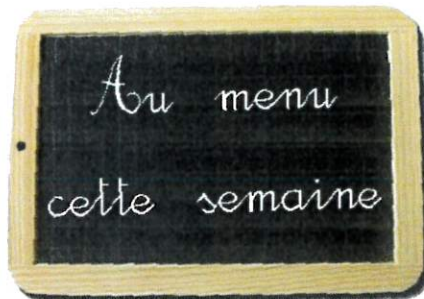 Au menu
cette semaine